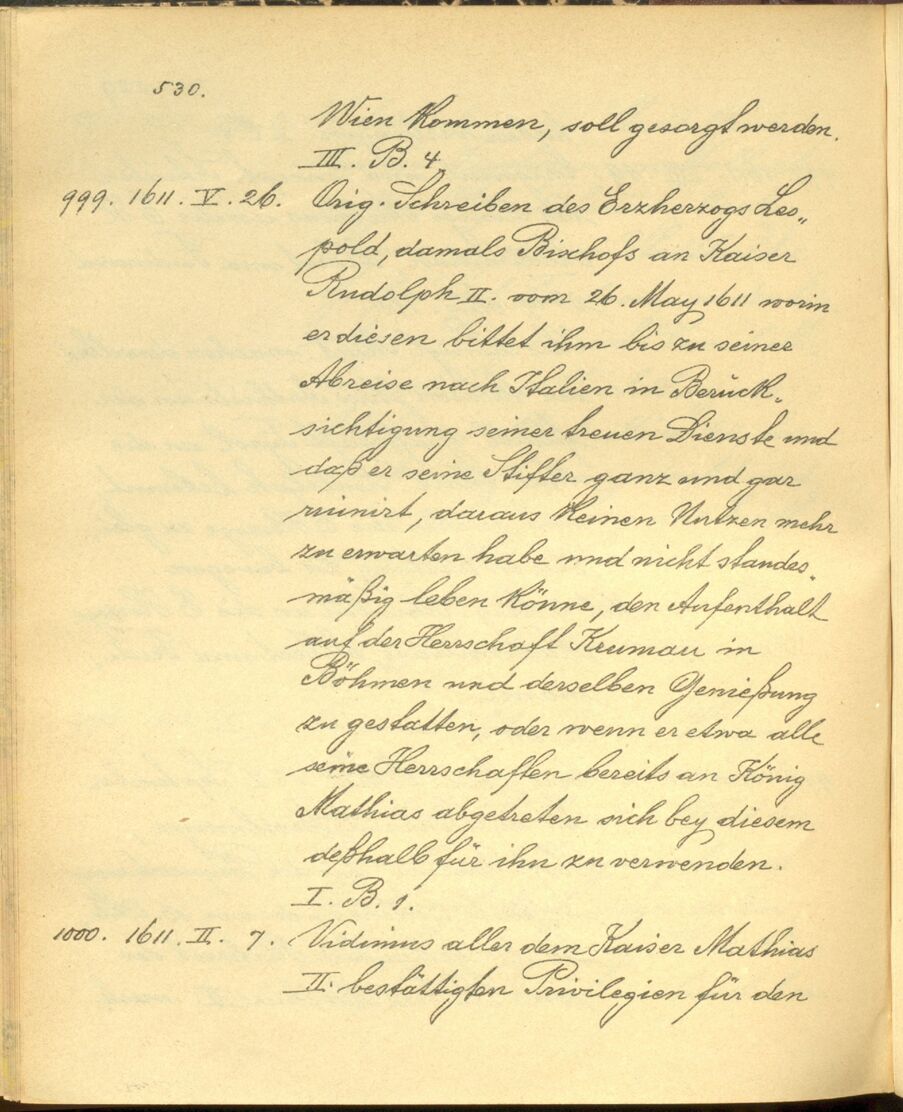 530.
Wien kommen, soll gesorgt werden.
III. B. 4.
999. 1611. V. 26. Orig. Schreiben des Erzherzogs Leo„
pold, damals Bischofs an Kaiser
Rudolph II. vom 26. May 1611 worin
er diesen bittet ihm bis zu seiner
Abreise nach Italien in Berück„
sichtigung seiner treuen Dienste und
daß er seine Stifter ganz und gar
ruinirt, daraus keinen Nutzen mehr
zu erwarten habe und nicht standes„
mäßig leben könne, den Aufenthalt
auf der Herrschaft Krumau in
Böhmen und derselben Genießung
zu gestatten, oder wenn er etwa alle
seine Herrschaften bereits an König
Mathias abgetreten sich bey diesem
deßhalb für ihn zu verwenden.
I. B. 1.
1000. 1611. II. 7. Vidimus aller dem Kaiser Mathias
II. bestättigten Privilegien für den